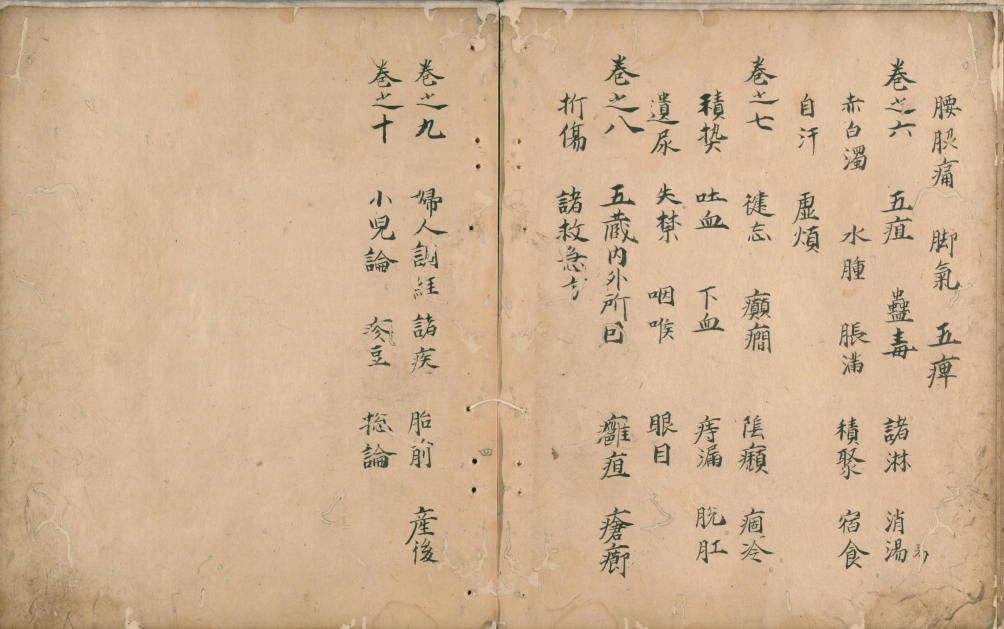 腰股痛 脚氣 五痺
卷之六 五疸 蠱毒 諸淋 消渴
赤白濁 水腫 脹滿 積聚 宿食
自汗 虛煩
卷之七 健忘 癲癇 陰癩 痼冷
積熱 吐血 下血 痔漏 脫肛
遺尿 失禁 咽喉 眼目
卷之八 五藏内外所因 癰疽 瘡癤
折傷 諸救急方
卷之九 婦人調經 諸疾 胎前 産後
卷之十 小兒論 疹豆 揔論